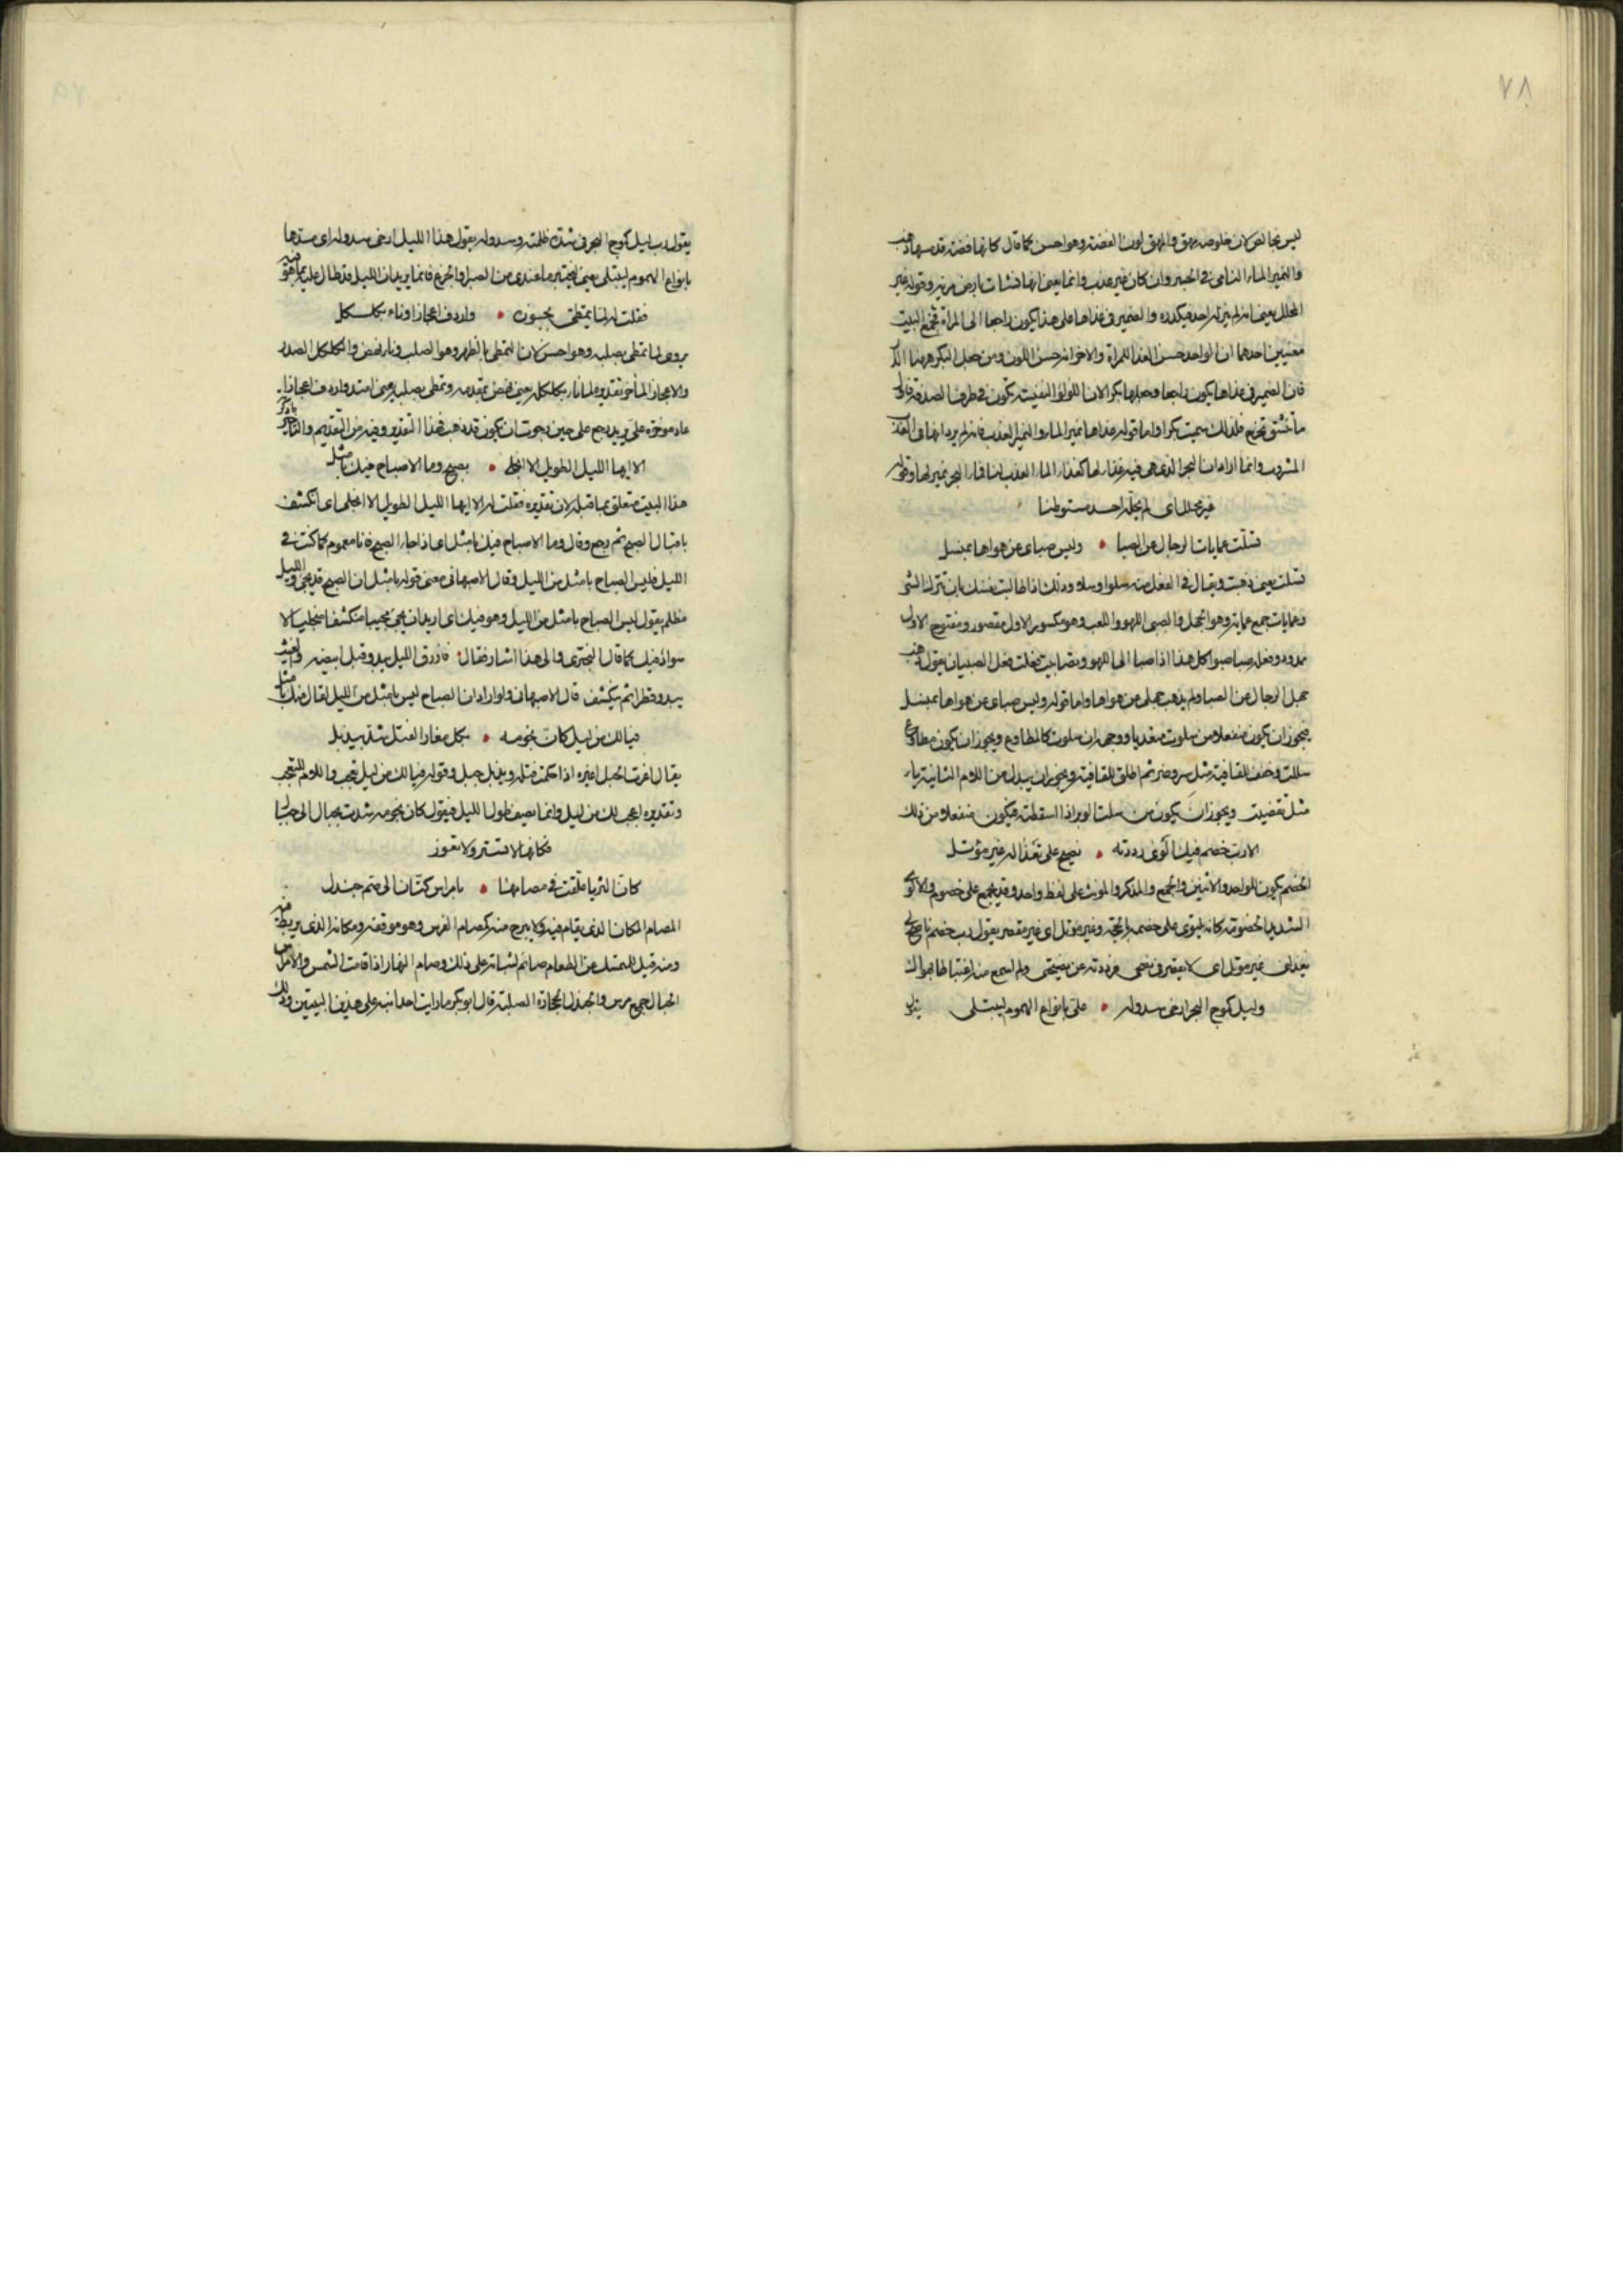 ٧٨
ليس بخالص لان خلوصه يهق والمهق لون الفضة وهو احسن كما قال كانها فضة قد مسها ذهب
والنمير الماء النامى فى الجسد وان كان غير عذب وانما يعنى انها نشات بارض مرية وقوله غير
المحلل يعنى انه لم ينزله احد فيكدره والضمير فى غذاها على هذا يكون راجعا الى المراة فتجمع البيت
معنيين احدهما ان الواحد حسن الغذا للمراة والاخر انه حسن اللون ومن جعل البكر ههنا الدر
فان الضمير فى غذاها يكون راجعا وجعلها بكرا لان اللؤلؤ النفيسة تكون فى طرف الصدفة فاول
ما تنشق تخرج فلذلك سميت بكرا واما قوله غذاها نمير الماء والنمير العذب فانه لم يرد انها فى العذب
المشروب وانما اراد ان البحر الذى هى فيه غذاء لها كغذاء الماء العذب لنا فماء البحر نمير لها وقوله
غير محلل اى لم يحله احد مستوطنا
تسلت عمايات الرجال عن الصبا • وليس صباى عن هواها بمنسل
تسلت يعنى ذهبت ويقال فى الفعل منه سلوا وسلو وذلك اذا طالبت نفسك بان تترك الشى
وعمايات جمع عماية وهو الجهل والصبى اللهو واللعب وهو مكسور الاول مقصور ومفتوح الاول
ممدود وفعله صبا يصبو كل هذا اذا صبا الى اللهو وتصابيت فعلت فعل الصبيان يقول ذهب
جهل الرجال من الصبا ولم يذهب جهلى من هواها واما قوله وليس صباى عن هواها بمنسل
فيجوز ان يكون منفعلا من سلوت متعديا ووجهه ان سلوت كالمطاوع ويجوز ان يكون مطاوع
سللت وخفف للقافية مثل سر وضر ثم اطلق للقافية ويجوز ان يبدل من اللام الثانية ياء
مثل تقضيت ويجوز ان يكون من سلت الوبر اذا اسقطته فيكون منفعلا من ذلك
الا رب خصم فيك الوى رددته • نصيح على تعذاله غير مؤتل
الخصم يكون للواحد والاثنين والجمع والمذكر والمونث على لفظ واحد وقد يجمع على خصوم والالوى
الشديد الخصومة كانه يلتوى على خصمه بالحجة وغير مؤتل اى غير مقصر يقول رب خصم ناصح لى
يعذلنى غير موتل اى لا يقصر فى نصحى فرددته عن نصيحتى ولم اسمع منه اغتباطا بهواك
وليل كموج البحر ارخى سدوله • على بانواع الهموم ليبتلى يقول
يقول رب ليل كموج البحر فى شدة ظلمته وسدوله يقول هذا الليل ارخى سدوله اى سترها
بانواع الهموم ليبتلى يعنى ليختبر ما عندى من الصبر والجزع فانما يريد ان الليل قد طال عليه بما هو فيه
فقلت له لما تمطى بجوزه • واردف اعجازا وناء بكلكل
يروى لما تمطى بصلبه وهو احسن لان التمطى بالظهر وهو الصلب وناء نهض والكلكل الصدر
والاعجاز المآخر تقديره لما ناء بكلكله يعنى نهض بمقدمه وتمطى بصلبه يعنى امتد واردف اعجازا
عاد موخره على يريد رجع على حين رجوت ان يكون قد ذهب فهذا التقدير وفيه من التقديم والتاخير ما ذكر
الا ايها الليل الطويل الا انجلى • بصبح وما الاصباح فيك بامثل
هذا البيت متعلق بما قبله لان تقديره فقلت له الا ايها الليل الطويل الا انجلى اى انكشف
باقبال الصبح ثم رجع وقال وما الاصباح فيك بامثل اى اذا جاء الصبح فانا مغموم كما كنت فى
الليل فليس الصباح بامثل من الليل وقال الاصبهانى معنى قوله بامثل ان الصبح قد يجى والليل
مظلم يقول ليس الصباح بامثل من الليل وهو فيك اى اريد ان يجى مجيبا منكشفا منجليا لا
سواد فيك كما قال البحترى والى هذا اشار فقال فازرق الليل يبدو قبل ابيضه والغيث
يبدو قطرا ثم ينكشف قال الاصبهانى ولو اراد ان الصباح ليس بامثل من الليل لقال منك بامثل
فيا لك من ليل كان نجومه • بكل مغار الفتل شدت بيذبل
يقال اغرت الحبل اغيره اذا احكمت فتله ويذبل جبل وقوله فيا لك من ليل تعجب واللام للتعجب
وتقديره اعجب لك من ليل وانما يصف طول الليل فيقول كان نجومه شدت بحبال الى جبال
فكانها لا تستر ولا تغور
كان الثريا علقت فى مصامها • بامراس كتان الى صم جندل
المصام المكان الذى يقام فيه ولا يبرح منه كمصام الفرس وهو موقفه ومكانه الذى يربط فيه
ومنه قيل للممسك عن الطعام صائم لثباته على ذلك وصام النهار اذا قامت الشمس والامراس
الحبال جمع مرس والجندل الحجارة الصلبة قال ابو بكر ما رايت احدا نبه على هذين البيتين وذلك